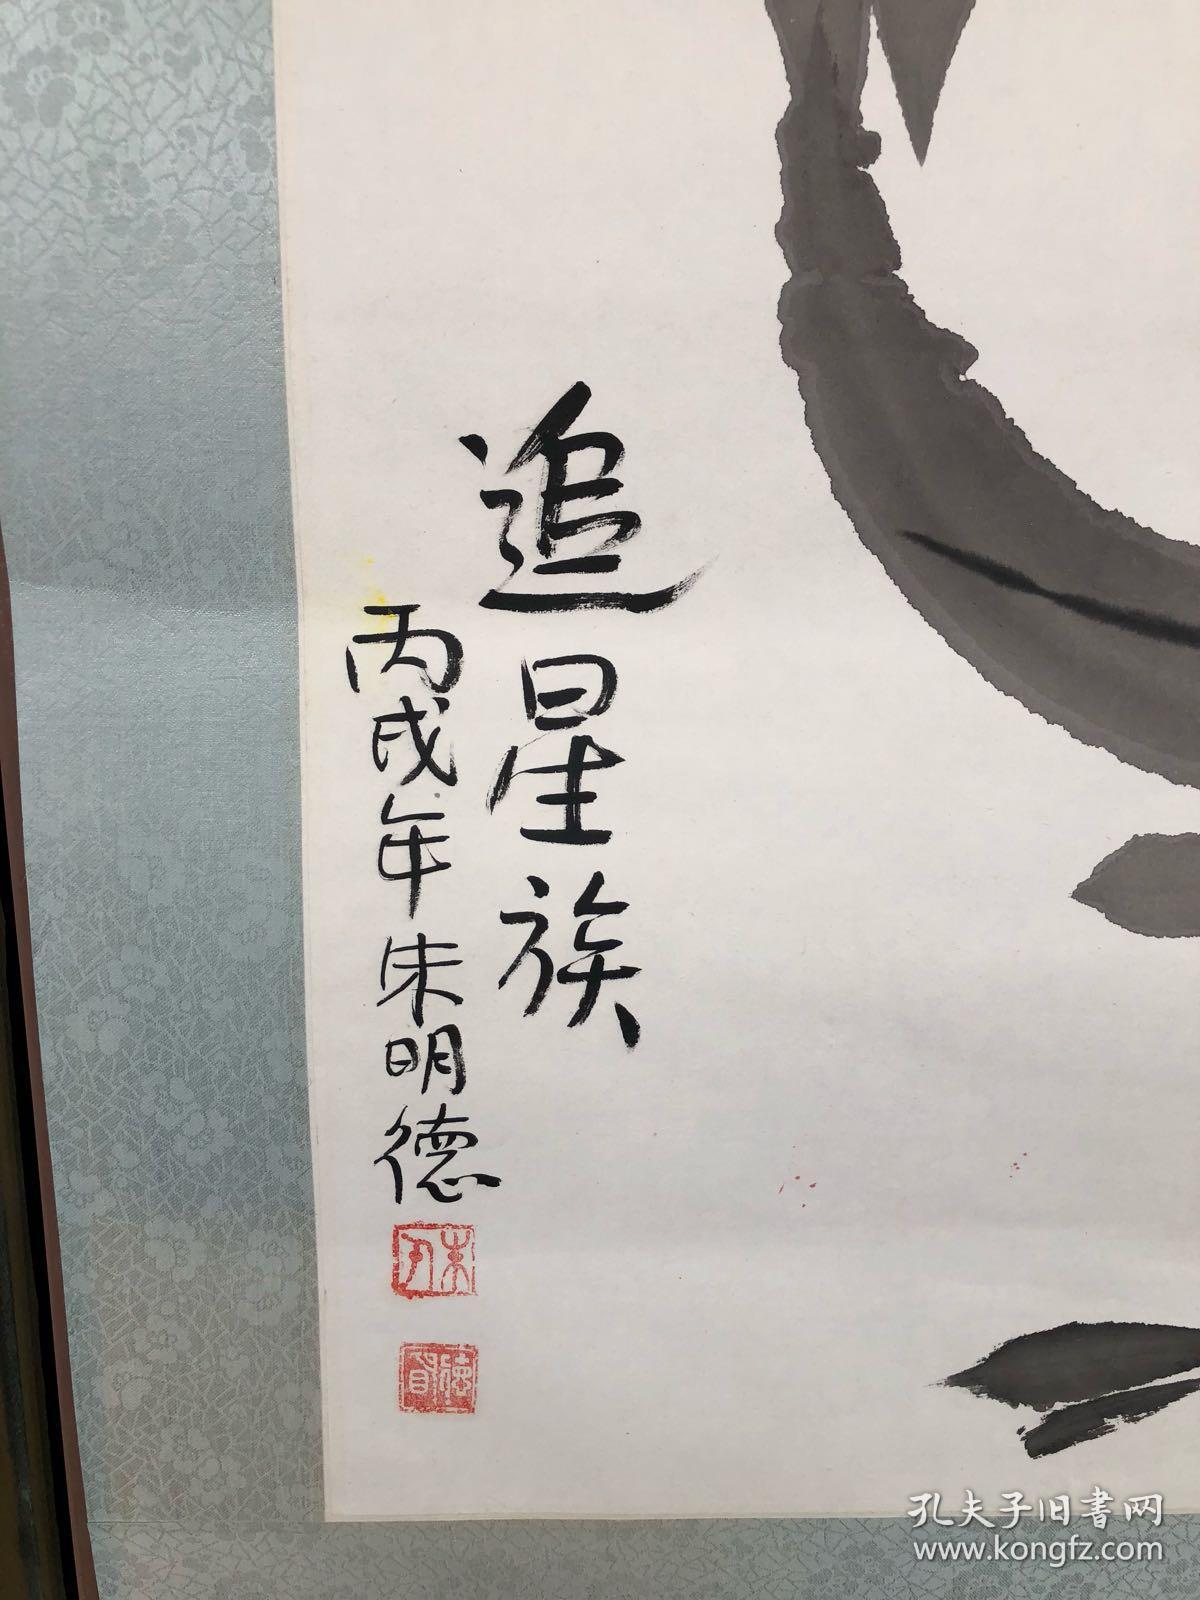 追星族
丙戌年朱明德
孔夫子旧书网
www.kongfz.com